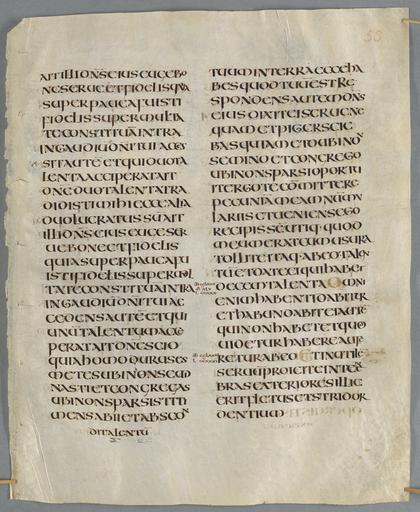 AITILLIDN̅SEIUSEUGEBO
NESERUEETFIDELISQUIA
SUPERPAUCAFUISTI
FIDELISSUPERMULTA
TECONSTITUA̅INTRA
INGAUDIU̅DN̅ITUIACCES
SITAUTE̅ETQUIDUOTA
LENTAACCEPERATAIT
DN̅EDUOTALENTATRA
DIDISTIMIHIECCEALIA
DUOLUCRATUSSU̅AIT
ILLIDN̅SEIUSEUGESER
UEBONEETFIDELIS
QUIASUPERPAUCAFU
ISTIFIDELISSUPERMUL
TATECONSTITUA̅INTRA
INGAUDIU̅DN̅ITUIAC
CEDENSAUTE̅ETQUI
UNU̅TALENTU̅ACCE
PERATAITDN̅ESCIO
QUIAHOMODURUSES
METESUBINONSEMI
NASTIETCONGREGAS
UBINONSPARSISTITI
MENSABIIETABSCON
DITALENTU̅
55
TUUMINTERRAECCEHA
BESQUODTUUMESTRE
SPONDENSAUTEMDN̅S
EIUSDIXITEISERUENE
QUAMETPIGERSCIE
BASQUIAMETOUBINON
SEMINOETCONGREGO
UBINONSPARSIOPORTU
ITERGOTECO̅MITTERE
PECUNIAMMEAMNUMU
LARIISETUENIENSEGO
RECIPISSE̅UTIQ·QUOD
MEUMERATCUMUSURA
TOLLITEITAQ·ABEOTALEN
TU̅ETDATEEIQUIHABET
DECEMTALENTAOMNI
ENIMHABENTIDABITUR
ETHABUNDABITEIAUTE̅
QUINONHABETETQUOD
UIDETURHABEREAUFE
RETURABEOETINUTILE̅
SERUU̅PROICITEINTENE
BRASEXTERIORESILLIC
ERITFLETUSETSTRIDOR
DENTIUM